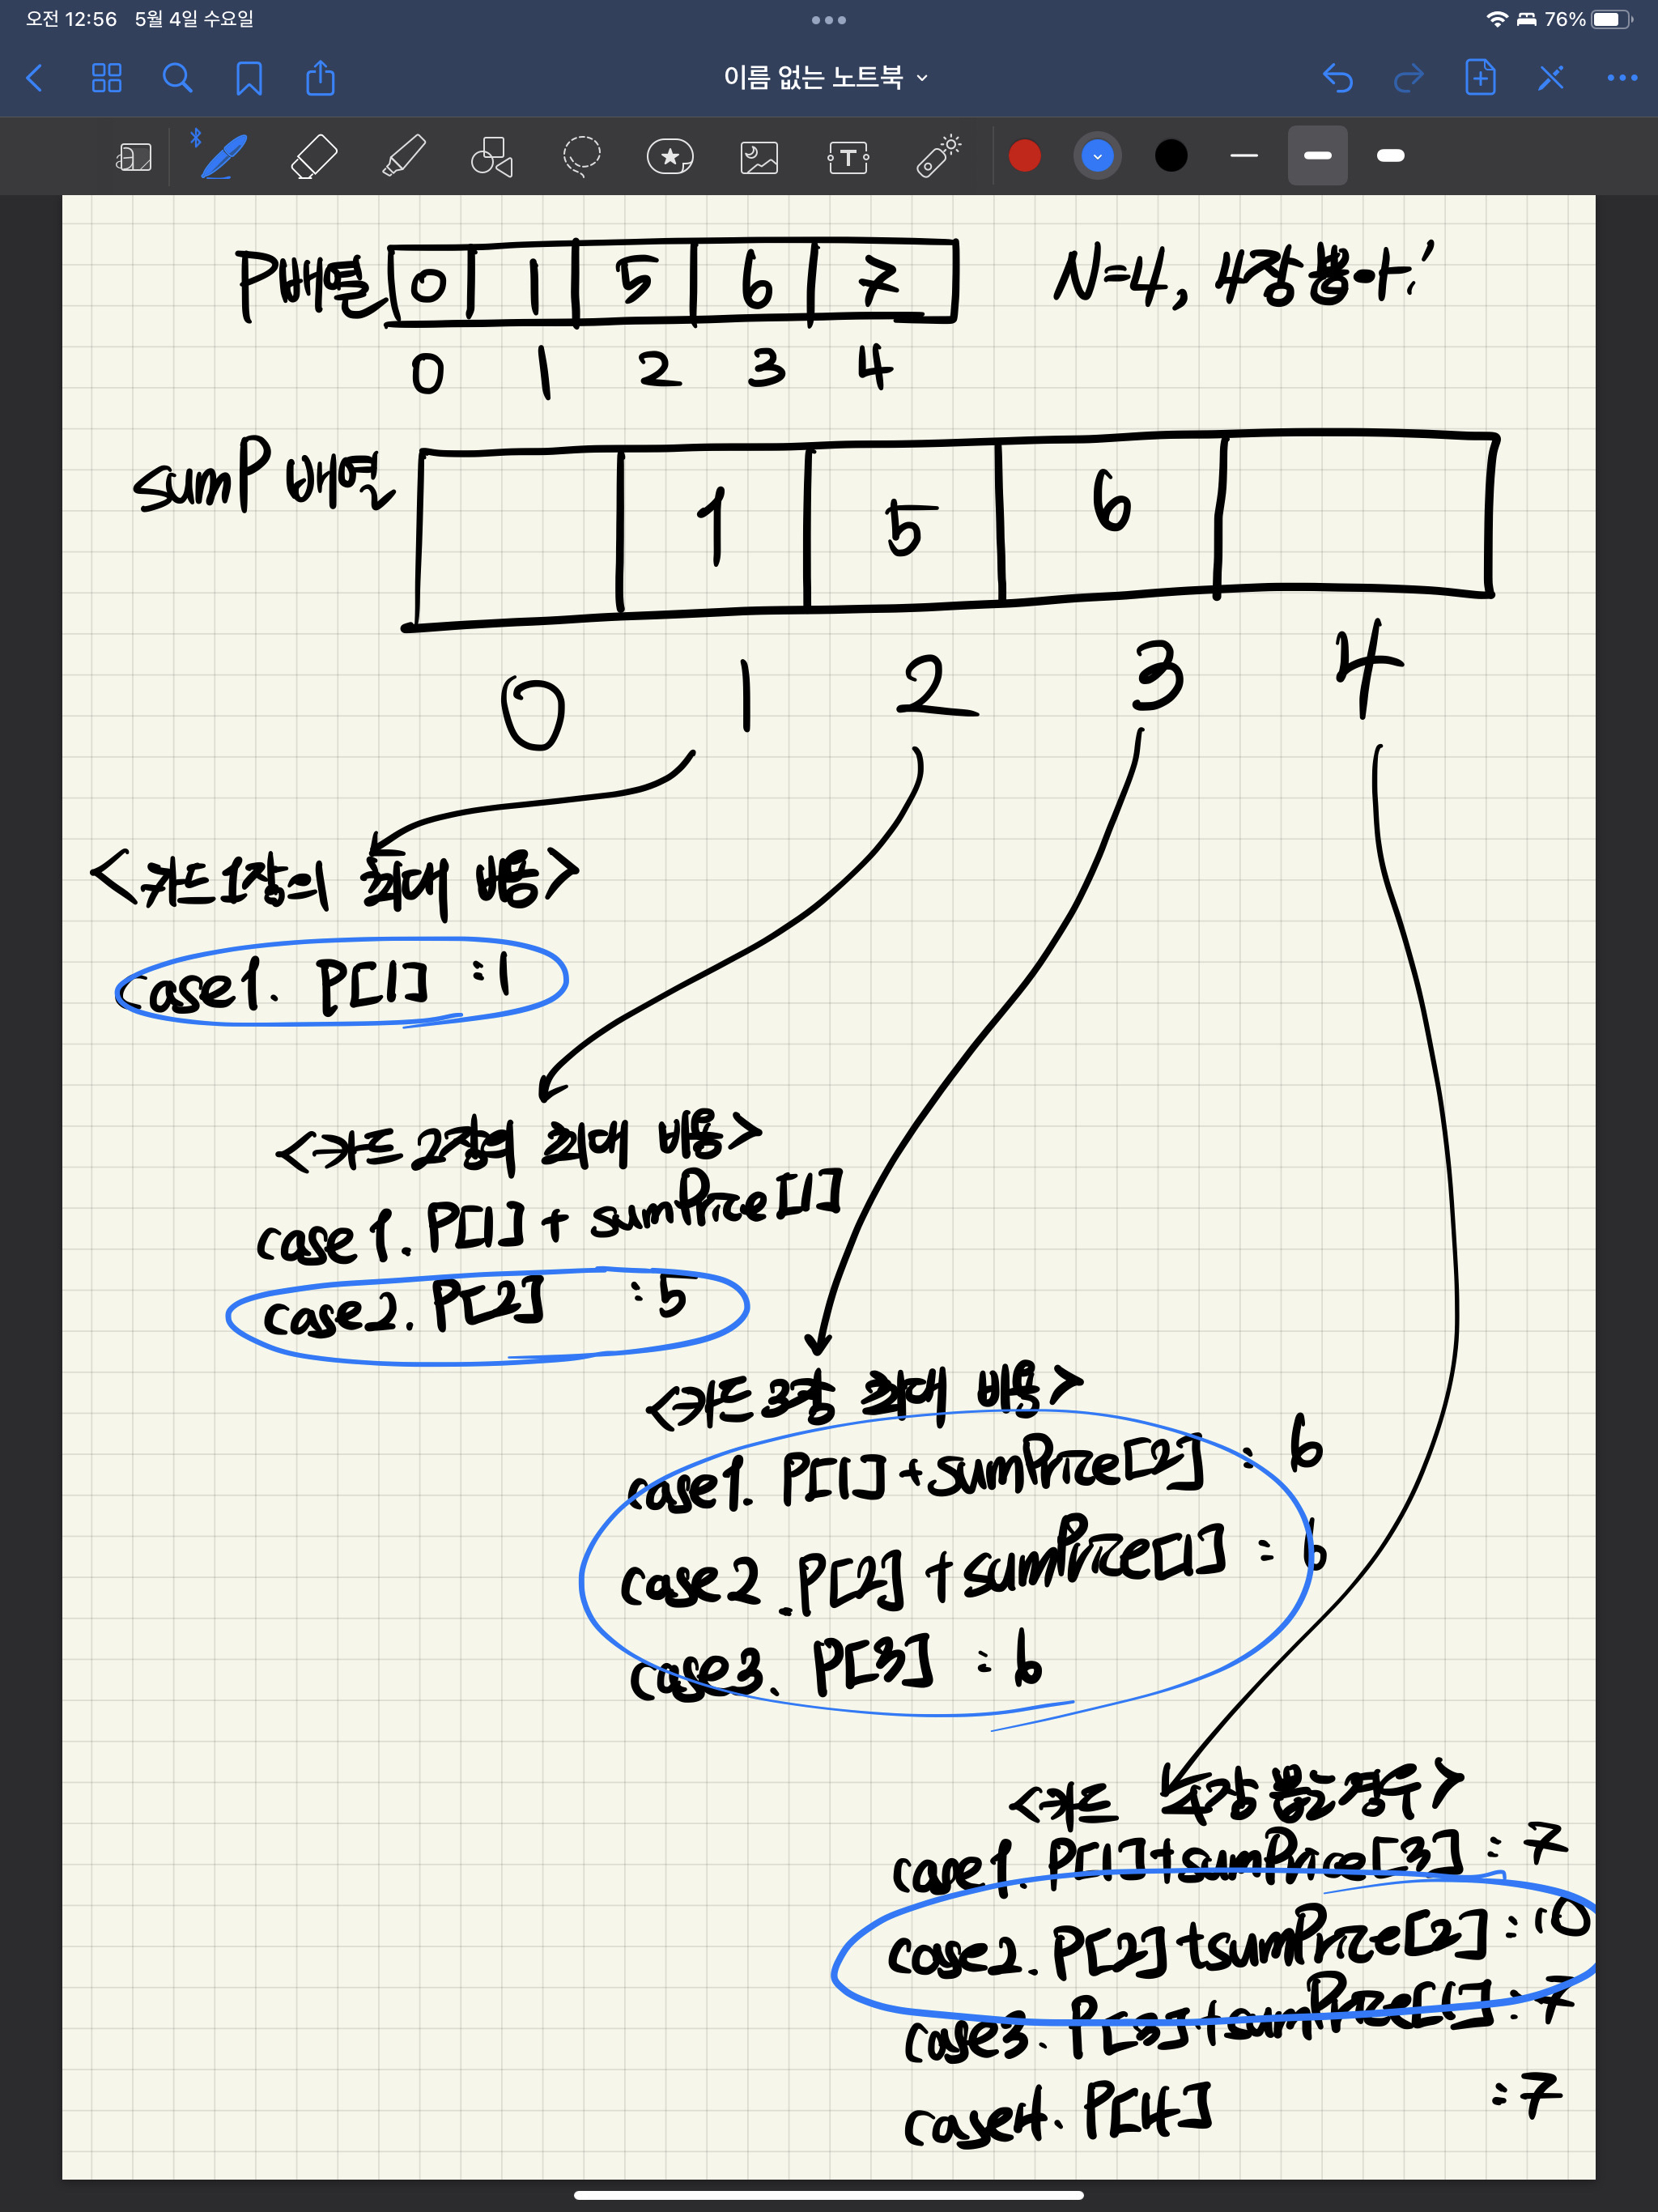 오전 12:56 5월 4일 수요일
76%
이름 없는 노트북
P배열 0 1 5 6 7 N=4, 4장 뽑아!
0 1 2 3 4
sumP 배열 1 5 6
0 1 2 3 4
<카드 1장의 최대 비용>
case1. P[1] :1
<카드 2장의 최대 비용>
case1. P[1] + sumPrice[1]
case2. P[2] :5
<카드 3장 최대 비용>
case1. P[1]+sumPrice[2] : 6
case2. P[2]+sumPrice[1] : 6
case3. P[3] : 6
<카드 4장 뽑는 경우>
case1. P[1]+sumPrice[3] : 7
case2. P[2]+sumPrice[2] : 10
case3. P[3]+sumPrice[1] : 7
case4. P[4] : 7